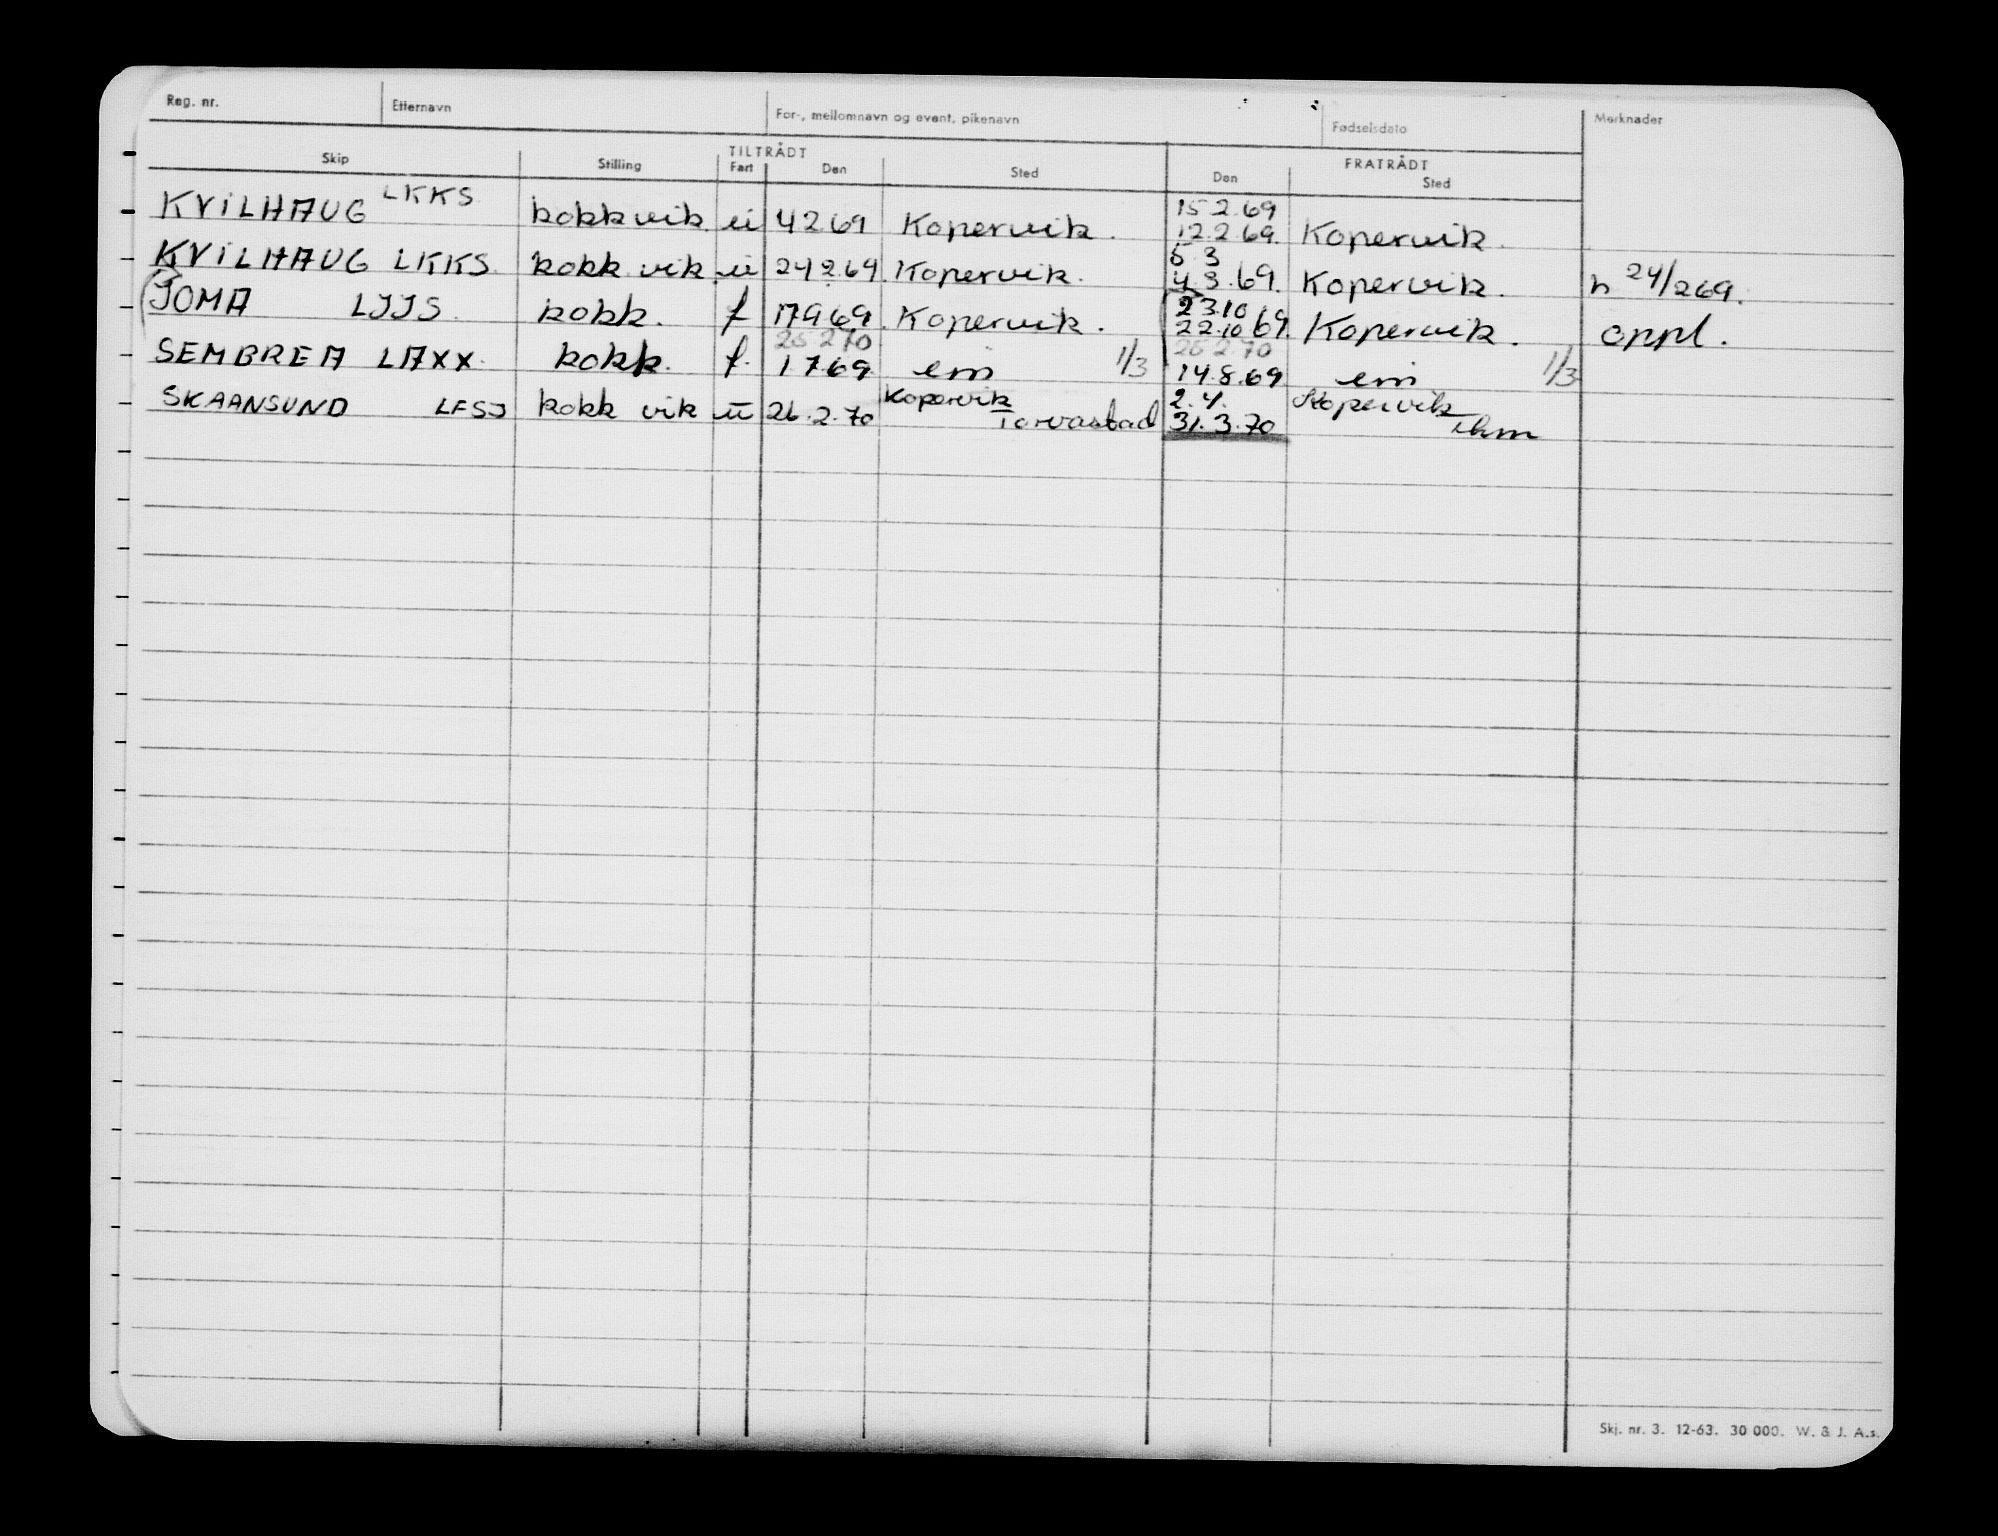 Reg. nr. Etternavn For-, mellomnavn og event. pikenavn Fødselsdato Merknader
TILTRÅDT FRATRÅDT
Skip Stilling Fart Den Sted Den Sted
KVILHAUG LKKS kokk vik. ui 4 2 69 Kopervik. 15 2. 69 12. 2 69. Kopervik.
KVILHAUG LKKS. kokk vik ui 24 2. 69. Kopervik. 5 3 4. 3. 69. Kopervik. h 24/2 69.
(JOMA LJJS. kokk. f 17 9 69. Kopervik. (23.10 69 22.10 69. Kopervik. oppl.
25 2 70 25 2. 70
SEMBREA LAXX. kokk. f. 1. 7. 69 em 1/3 14. 8. 69 em 1/3
SKAANSUND LFSJ kokk vik u 26. 2. 70 Kopervik Torvastad 2. 4. 31. 3. 70 Kopervik Thm
Skj. nr. 3. 12-63. 30 000. W. & J. A.s.